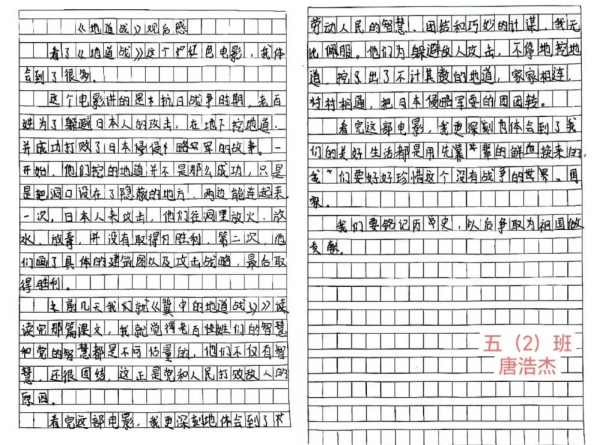 《地道战》观后感
看了《地道战》这个红色电影，我体
会到了很多。
这个电影讲的是抗日战争时期，老百
姓为了躲避日本人的攻击，在地下挖地道，
并成功打败了日本侵略军的故事。一
开始，他们挖的地道并不是那么成功，只是
是把洞口设在了隐蔽的地方，两边能连起来
一次，日本人来攻击，他们往洞里放火、放
水、放毒，并没有取得胜利，第二次，他
们画了具体的建筑图以及攻击战略，最后取
得胜利。
前几天我们就《冀中的地道战》读
读完那篇课文，我就觉得老百姓们的智慧
和党的智慧都是不可估量的，他们不仅有智
慧，还很团结，这正是党和人民打败敌人的
原因。
看完这部电影，我更深刻地体会到了
劳动人民的智慧、团结和巧妙的计谋，我无
比佩服。他们为躲避敌人攻击，不停地挖地
道，挖出了不计其数的地道，家家相连，
村村相通，把日本侵略军耍的团团转。
看完这部电影，我更深刻的体会到了我
们的美好生活都是用先辈的鲜血换来的，
我们要好好珍惜这个没有战争的世界。
我们要铭记历史，以后争取为祖国做
贡献。
五（2）班
唐浩杰